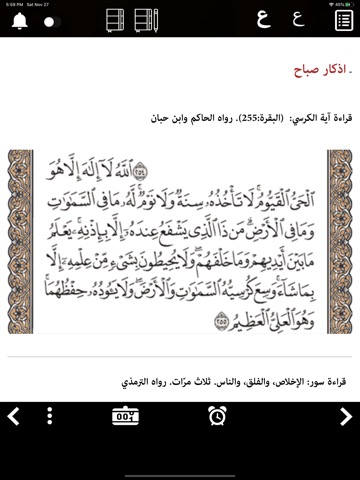 5:59 PM Sat Nov 27
45%
ع ع
- اذكار صباح
قراءة آية الكرسي: (البقرة:255). رواه الحاكم وابن حبان
٢٥٤ ٱللَّهُ لَآ إِلَٰهَ إِلَّا هُوَ
ٱلْحَىُّ ٱلْقَيُّومُ ۚ لَا تَأْخُذُهُۥ سِنَةٌ وَلَا نَوْمٌ ۚ لَّهُۥ مَا فِى ٱلسَّمَٰوَٰتِ
وَمَا فِى ٱلْأَرْضِ ۗ مَن ذَا ٱلَّذِى يَشْفَعُ عِندَهُۥٓ إِلَّا بِإِذْنِهِۦ ۚ يَعْلَمُ
مَا بَيْنَ أَيْدِيهِمْ وَمَا خَلْفَهُمْ ۖ وَلَا يُحِيطُونَ بِشَىْءٍ مِّنْ عِلْمِهِۦٓ إِلَّا
بِمَا شَآءَ ۚ وَسِعَ كُرْسِيُّهُ ٱلسَّمَٰوَٰتِ وَٱلْأَرْضَ ۖ وَلَا يَـُٔودُهُۥ حِفْظُهُمَا ۚ
وَهُوَ ٱلْعَلِىُّ ٱلْعَظِيمُ ٢٥٥
قراءة سور: الإخلاص، والفلق، والناس. ثلاث مرّات. رواه الترمذي
007